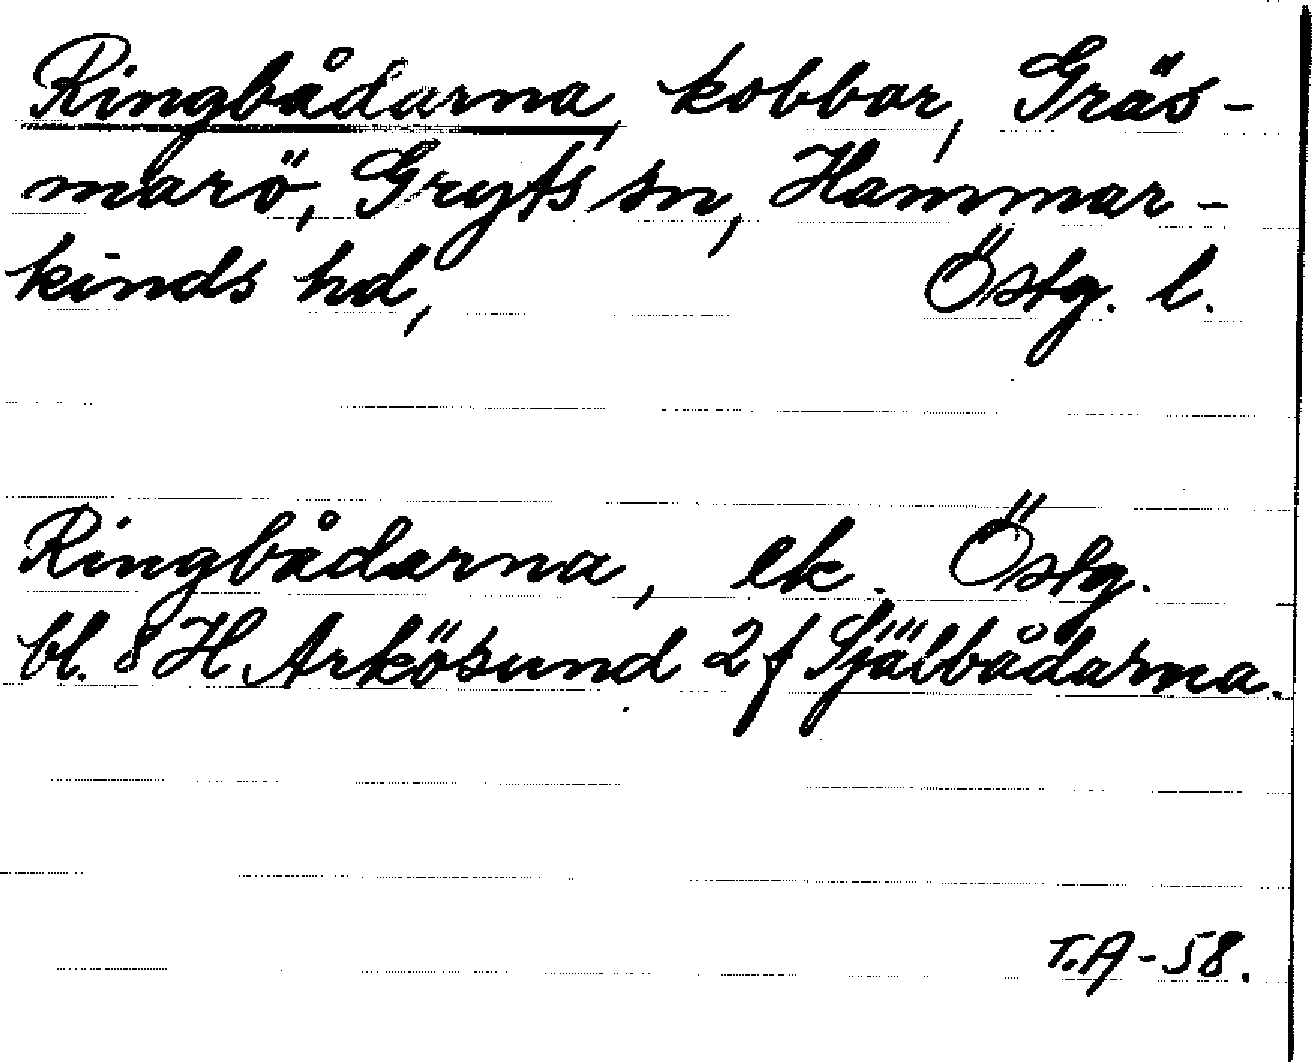 Ringbådarna, kobbar, Gräs-
marö, Gryts sn, Hammar-
kinds hd, Östg. l.
Ringbådarna, ek. Östg.
bl. 8 H Arkösund 2 f Själbådarna.
T.A-58.